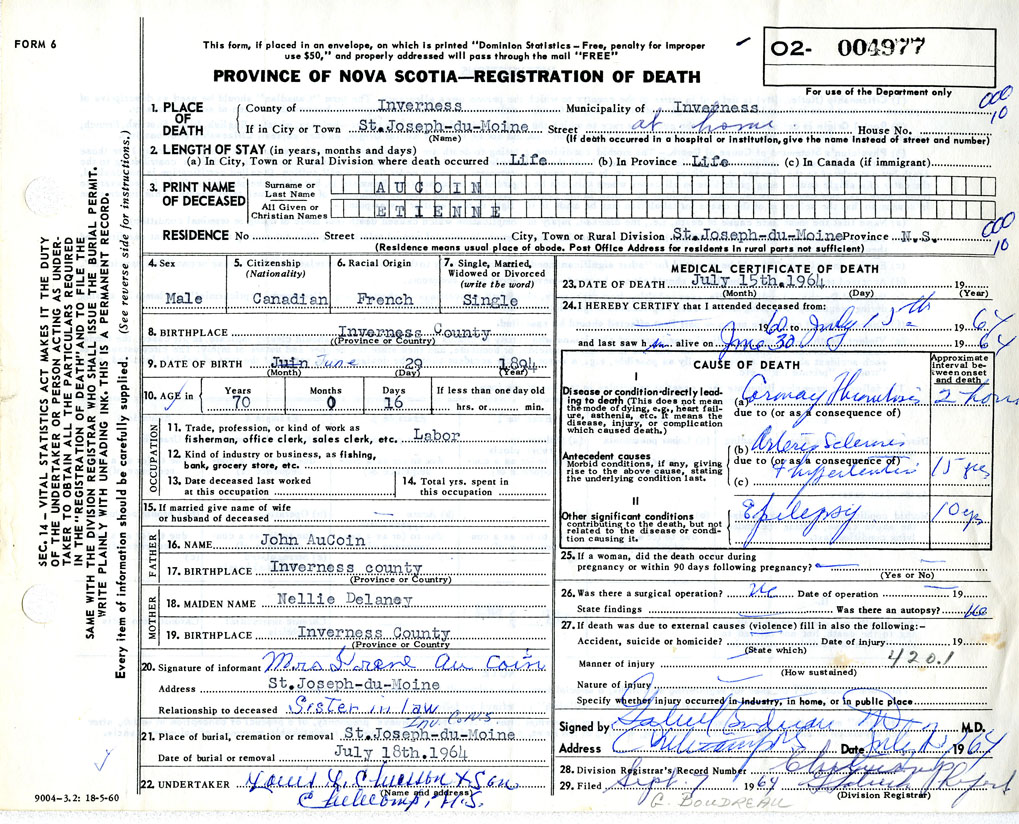 FORM 6
This form, if placed in an envelope, on which is printed "Dominion Statistics – Free, penalty for improper
use $50," and properly addressed will pass through the mail "FREE"
PROVINCE OF NOVA SCOTIA—REGISTRATION OF DEATH
02- 004977
For use of the Department only
000
10
1. PLACE OF DEATH
County of Inverness Municipality of Inverness
If in City or Town St.Joseph-du-Moine Street at home House No.
(Name) (If death occurred in a hospital or institution, give the name instead of street and number)
2. LENGTH OF STAY (in years, months and days)
(a) In City, Town or Rural Division where death occurred Life (b) In Province Life (c) In Canada (if immigrant)
3. PRINT NAME OF DECEASED
Surname or Last Name AUCOIN
All Given or Christian Names ETIENNE
000
10
RESIDENCE No Street City, Town or Rural Division St.Joseph-du-Moine Province N.S.
(Residence means usual place of abode. Post Office Address for residents in rural parts not sufficient)
SEC. 14 – VITAL STATISTICS ACT MAKES IT THE DUTY
OF THE UNDERTAKER OR PERSON ACTING AS UNDER-
TAKER TO OBTAIN ALL THE PARTICULARS REQUIRED
IN THE "REGISTRATION OF DEATH" AND TO FILE THE
SAME WITH THE DIVISION REGISTRAR WHO SHALL ISSUE THE BURIAL PERMIT.
WRITE PLAINLY WITH UNFADING INK. THIS IS A PERMANENT RECORD.
Every item of information should be carefully supplied. (See reverse side for instructions.)
4. Sex Male
5. Citizenship (Nationality) Canadian
6. Racial Origin French
7. Single, Married, Widowed or Divorced (write the word) Single
8. BIRTHPLACE Inverness County
(Province or Country)
9. DATE OF BIRTH Juin June 29 1894
(Month) (Day) (Year)
10. AGE in Years 70 Months 0 Days 16 If less than one day old hrs. or min.
OCCUPATION
11. Trade, profession, or kind of work as
fisherman, office clerk, sales clerk, etc. Labor
12. Kind of industry or business, as fishing,
bank, grocery store, etc.
13. Date deceased last worked
at this occupation
14. Total yrs. spent in
this occupation
15. If married give name of wife
or husband of deceased —
FATHER
16. NAME John AuCoin
17. BIRTHPLACE Inverness county
(Province or Country)
MOTHER
18. MAIDEN NAME Nellie Delaney
19. BIRTHPLACE Inverness County
(Province or Country)
20. Signature of informant Mrs Irene Au Coin
Address St.Joseph-du-Moine
Relationship to deceased Sister in law
Inv. Co N.S.
21. Place of burial, cremation or removal St.Joseph-du-Moine
Date of burial or removal July 18th.1964
22. UNDERTAKER & Son
(Name and address)
N.S.
9004-3.2: 18-5-60
MEDICAL CERTIFICATE OF DEATH
23. DATE OF DEATH July 15th.1964 19
(Month) (Day) (Year)
24. I HEREBY CERTIFY that I attended deceased from:
1960 to July 15th 1964
and last saw him alive on June 30 1964
CAUSE OF DEATH
Approximate interval between onset and death
I
Disease or condition directly leading to death (This does not mean
the mode of dying, e.g., heart failure, asthenia, etc. It means the
disease, injury, or complication
which caused death.)
(a) Coronary Thrombosis 2 hours
due to (or as a consequence of)
Antecedent causes
Morbid conditions, if any, giving
rise to the above cause, stating
the underlying condition last.
(b) Arterio Sclerosis
due to (or as a consequence of)
(c) + Hypertension 15 yrs
II
Other significant conditions
contributing to the death, but not
related to the disease or condition causing it.
Epilepsy 10 yrs
25. If a woman, did the death occur during
pregnancy or within 90 days following pregnancy? —
(Yes or No)
26. Was there a surgical operation? No Date of operation — 19
State findings Was there an autopsy? No
27. If death was due to external causes (violence) fill in also the following:–
Accident, suicide or homicide? Date of injury 19
(State which)
420.1
Manner of injury
(How sustained)
Nature of injury
Specify whether injury occurred in industry, in home, or in public place
Signed by M.D.
Address Date 1964
28. Division Registrar's Record Number
29. Filed Sept 1964
(Division Registrar)
G. BOUDREAU